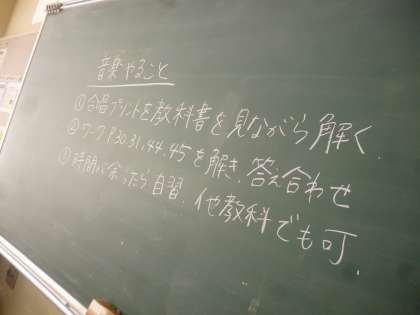 音楽やること
①合唱プリントを教科書を見ながら解く.
②ワークP30.31.44.45を解き.答え合わせ
③時間が余ったら自習.他教科でも可.